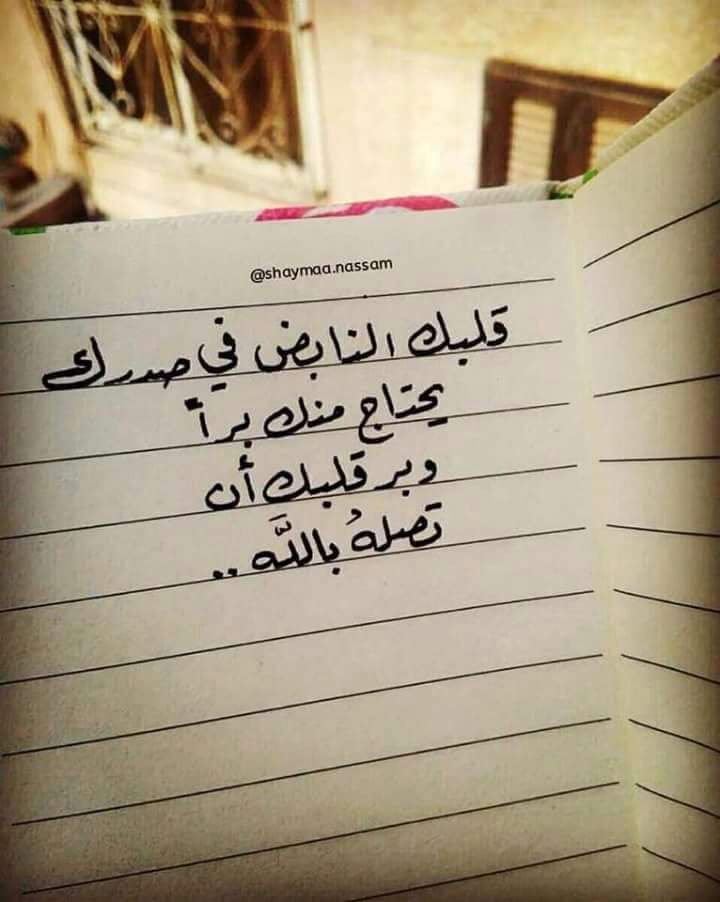 @shaymaa.nassam
قلبك النابض في صدرك
يحتاج منك براً
وبر قلبك أن
تصلهُ باللَّه ..